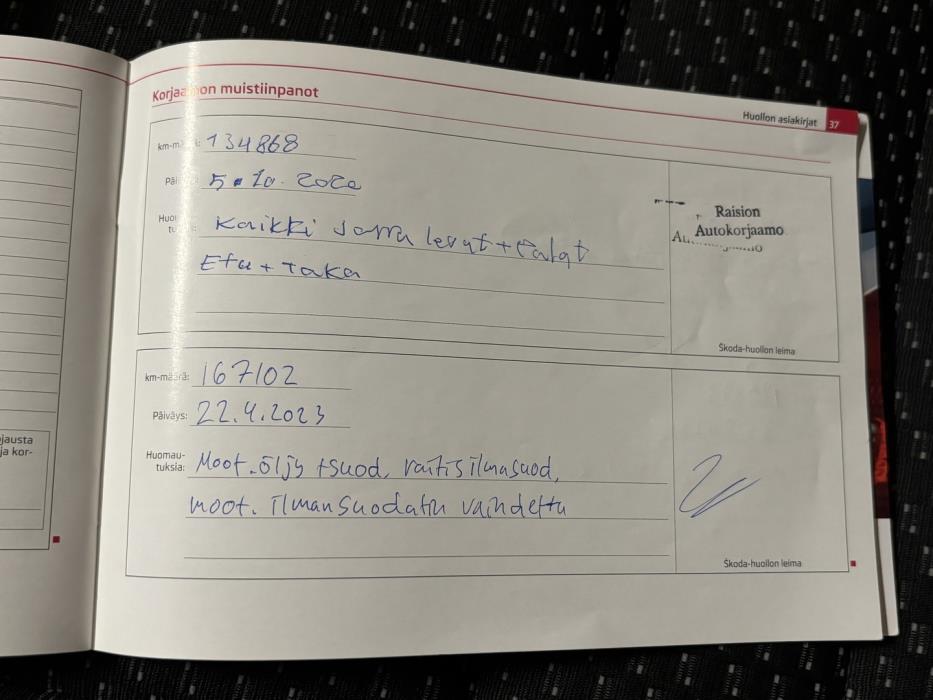 Korjaamon muistiinpanot
Huollon asiakirjat 37
km-määrä: 134868
Päiväys: 5.10.2020
Huomautuksia: Kaikki Jarru levyt + palat
Etu + Taka
Raision
Autokorjaamo
Škoda-huollon leima
km-määrä: 167102
Päiväys: 22.4.2023
Huomau-
tuksia: Moot.öljy + suod, raitisilmasuod,
moot. ilmansuodatin vaihdettu
Škoda-huollon leima
jausta
ja kor-